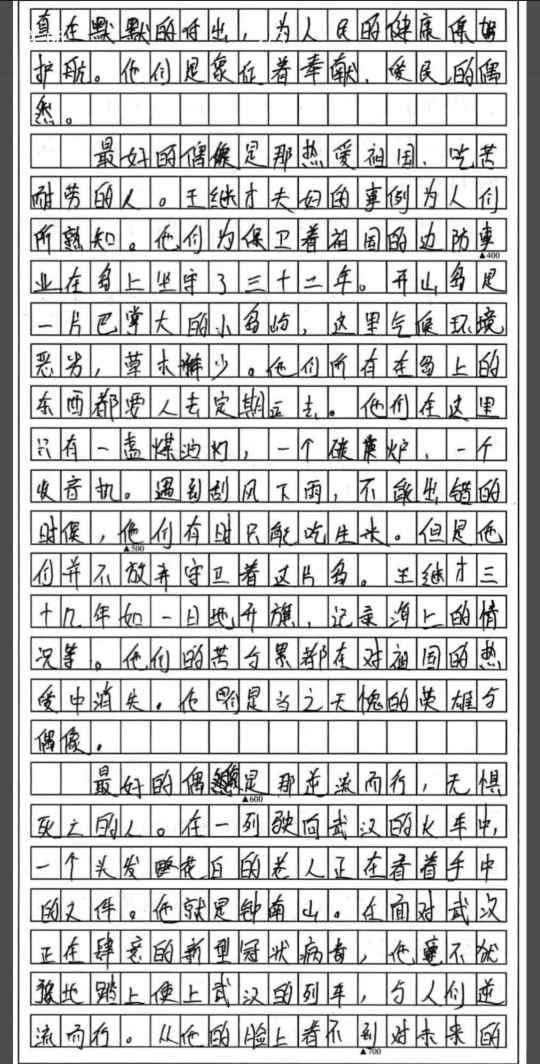 真在默默的付出，为人民的健康保驾
护航。他们是象征着奉献、爱民的偶
然。
最好的偶像是那热爱祖国、吃苦
耐劳的人。王继才夫妇的事例为人们
所熟知。他们为保卫着祖国的边防事
▲400
业在岛上坐守了三十二年。开山岛是
一片巴掌大的小岛屿，这里气候环境
恶劣，草木稀少。他们所有在岛上的
东西都要人去定期运去。他们在这里
只有一盏煤油灯，一个碳炉、一个
收音机。遇到刮风下雨，不能出错的
时候，他们有时只能吃生米。但是他
▲500
们并不放弃守卫着这片岛。王继才三
十几年如一日地升旗，记录海上的情
况等。他们的苦与累都在对祖国的热
爱中消失。他们是当之无愧的英雄与
偶像。
最好的偶像是那逆流而行，无惧
▲600
死亡的人。在一列驶向武汉的火车中，
一个头发略花白的老人正在看着手中
的文件。他就是钟南山。在面对武汉
正在肆意的新型冠状病毒，他毫不犹
豫地踏上使上武汉的列车，与人们逆
流而行。从他的脸上看不到对未来的
▲700